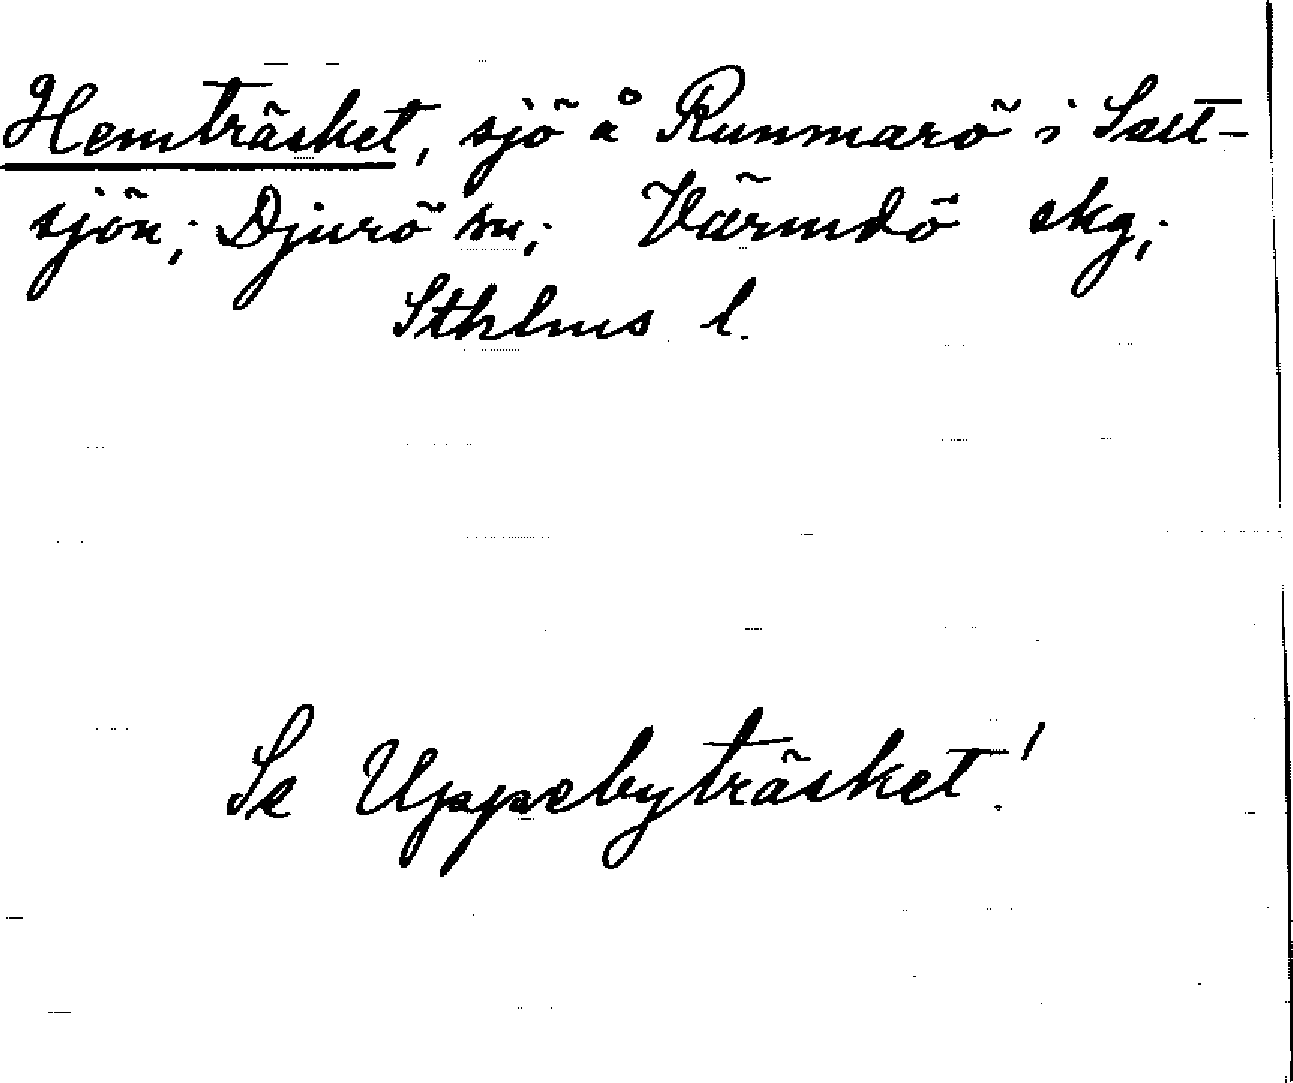 Hemträsket, sjö å Runmarö i Salt-
sjön; Djurö sn; Värmdö skg;
Sthlms l.
Se Uppebyträsket!